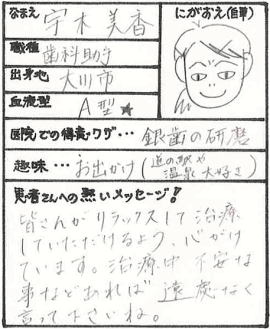 なまえ 宇木 美香
にがおえ(自筆)
職種 歯科助手
出身地 大川市
血液型 A型★
医院での得意ワザ… 銀歯の研磨
趣味… お出かけ(道の駅や温泉大好き)
患者さんへの熱いメッセージ!
皆さんがリラックスして治療
していただけるよう、心がけ
ています。治療中 不安な
事などあれば 遠慮なく
言って下さいね。